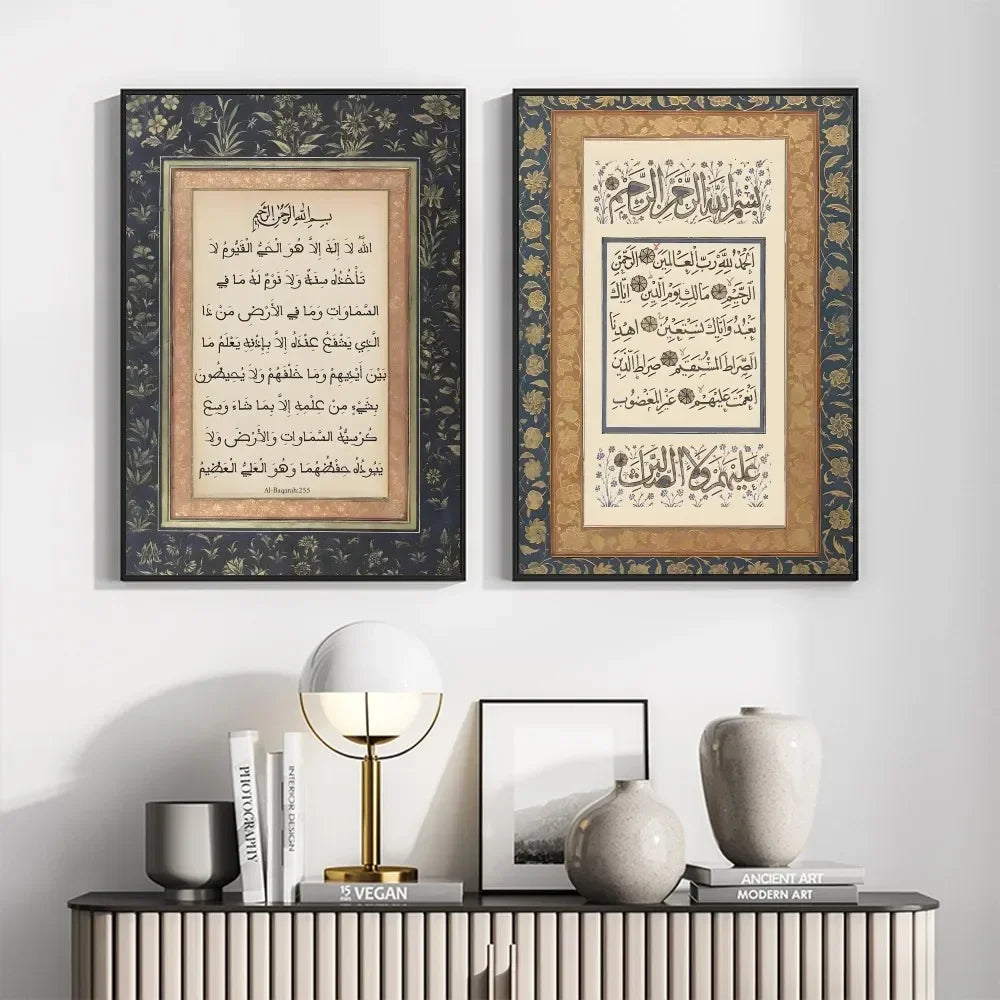 بسم الله الرحمن الرحيم
اللَّهُ لَا إِلَهَ إِلَّا هُوَ الْحَيُّ الْقَيُّومُ لَا
تَأْخُذُهُ سِنَةٌ وَلَا نَوْمٌ لَهُ مَا فِي
السَّمَاوَاتِ وَمَا فِي الْأَرْضِ مَنْ ذَا
الَّذِي يَشْفَعُ عِنْدَهُ إِلَّا بِإِذْنِهِ يَعْلَمُ مَا
بَيْنَ أَيْدِيهِمْ وَمَا خَلْفَهُمْ وَلَا يُحِيطُونَ
بِشَيْءٍ مِنْ عِلْمِهِ إِلَّا بِمَا شَاءَ وَسِعَ
كُرْسِيُّهُ السَّمَاوَاتِ وَالْأَرْضَ وَلَا
يَئُودُهُ حِفْظُهُمَا وَهُوَ الْعَلِيُّ الْعَظِيمُ
Al-Baqarah:255
بِسْمِ اللَّهِ الرَّحْمَنِ الرَّحِيمِ
الْحَمْدُ لِلَّهِ رَبِّ الْعَالَمِينَ الرَّحْمَنِ
الرَّحِيمِ مَالِكِ يَوْمِ الدِّينِ إِيَّاكَ
نَعْبُدُ وَإِيَّاكَ نَسْتَعِينُ اهْدِنَا
الصِّرَاطَ الْمُسْتَقِيمَ صِرَاطَ الَّذِينَ
أَنْعَمْتَ عَلَيْهِمْ غَيْرِ الْمَغْضُوبِ
عَلَيْهِمْ وَلَا
PHOTOGRAPHY
INTERIOR DESIGN
15 VEGAN
ANCIENT ART
MODERN ART